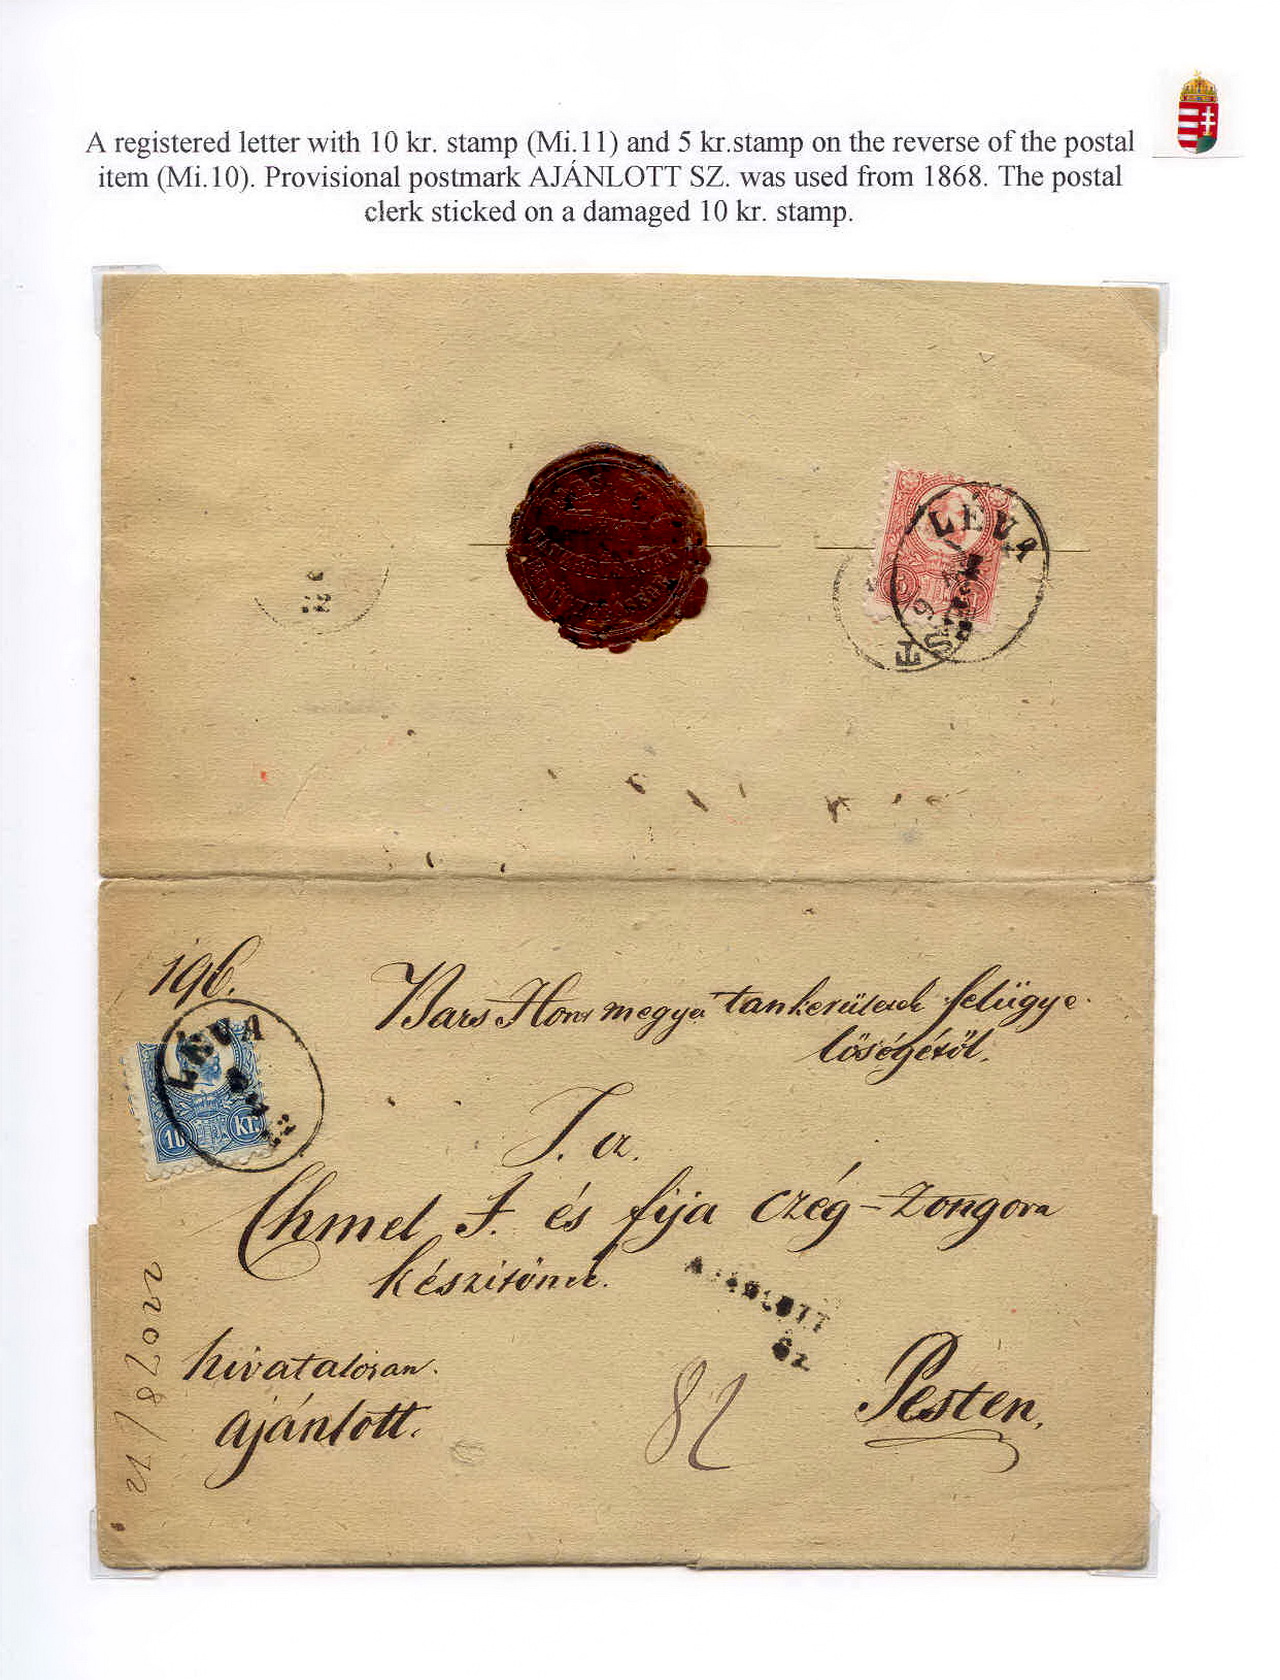 A registered letter with 10 kr. stamp (Mi.11) and 5 kr.stamp on the reverse of the postal
item (Mi.10). Provisional postmark AJÁNLOTT SZ. was used from 1868. The postal
clerk sticked on a damaged 10 kr. stamp.
LÉVA
5
196.
Bars Hont megyei tankerületek felügye
lőségétől.
LÉVA
10 kr.
T. cz.
Chmel J. és fija czég-zongora
készítőnek.
AJÁNLOTT
Sz
hivatalosan.
ajánlott.
82
Pesten,
22078/72